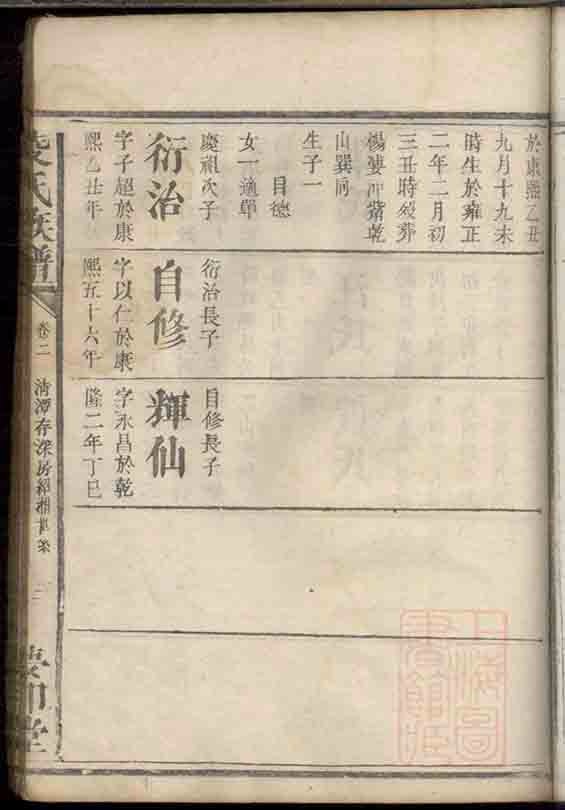 於康熙乙丑
九月十九未
時生於雍正
二年二月初
三丑時歿葬
楊婁冲紫乾
山巽向
生子一
目德
女一適鄆
慶祖次子
衍治
字子超於康
熙乙丑年
衍治長子
自修
字以仁於康
熙五十六年
自修長子
輝仙
字永昌於乾
隆二年丁巳
氏族譜
卷二
清潭存深房紹湘
堂
上海圖
書館藏